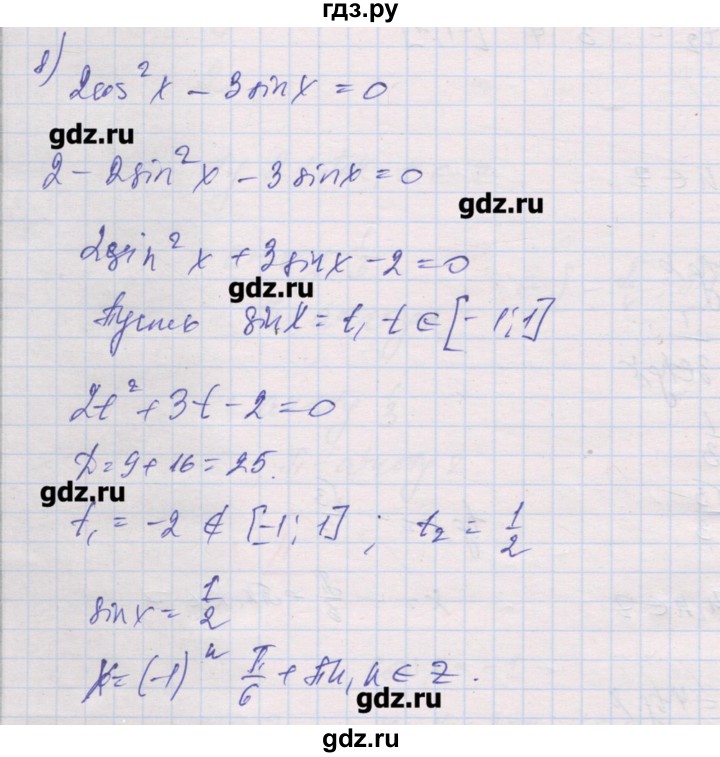 гдз.ру
в) 2cos²x – 3sinx = 0
gdz.ru
2 – 2sin²x – 3sinx = 0
gdz.ru
2sin²x + 3sinx – 2 = 0
gdz.ru
Пусть sinx = t, t ∈ [-1; 1]
2t² + 3t – 2 = 0
D = 9 + 16 = 25.
gdz.ru
t₁ = -2 ∉ [-1; 1] ; t₂ = 1/2
sinx = 1/2
x = (-1)ⁿ π/6 + πn, n ∈ Z.
gdz.ru
gdz.ru